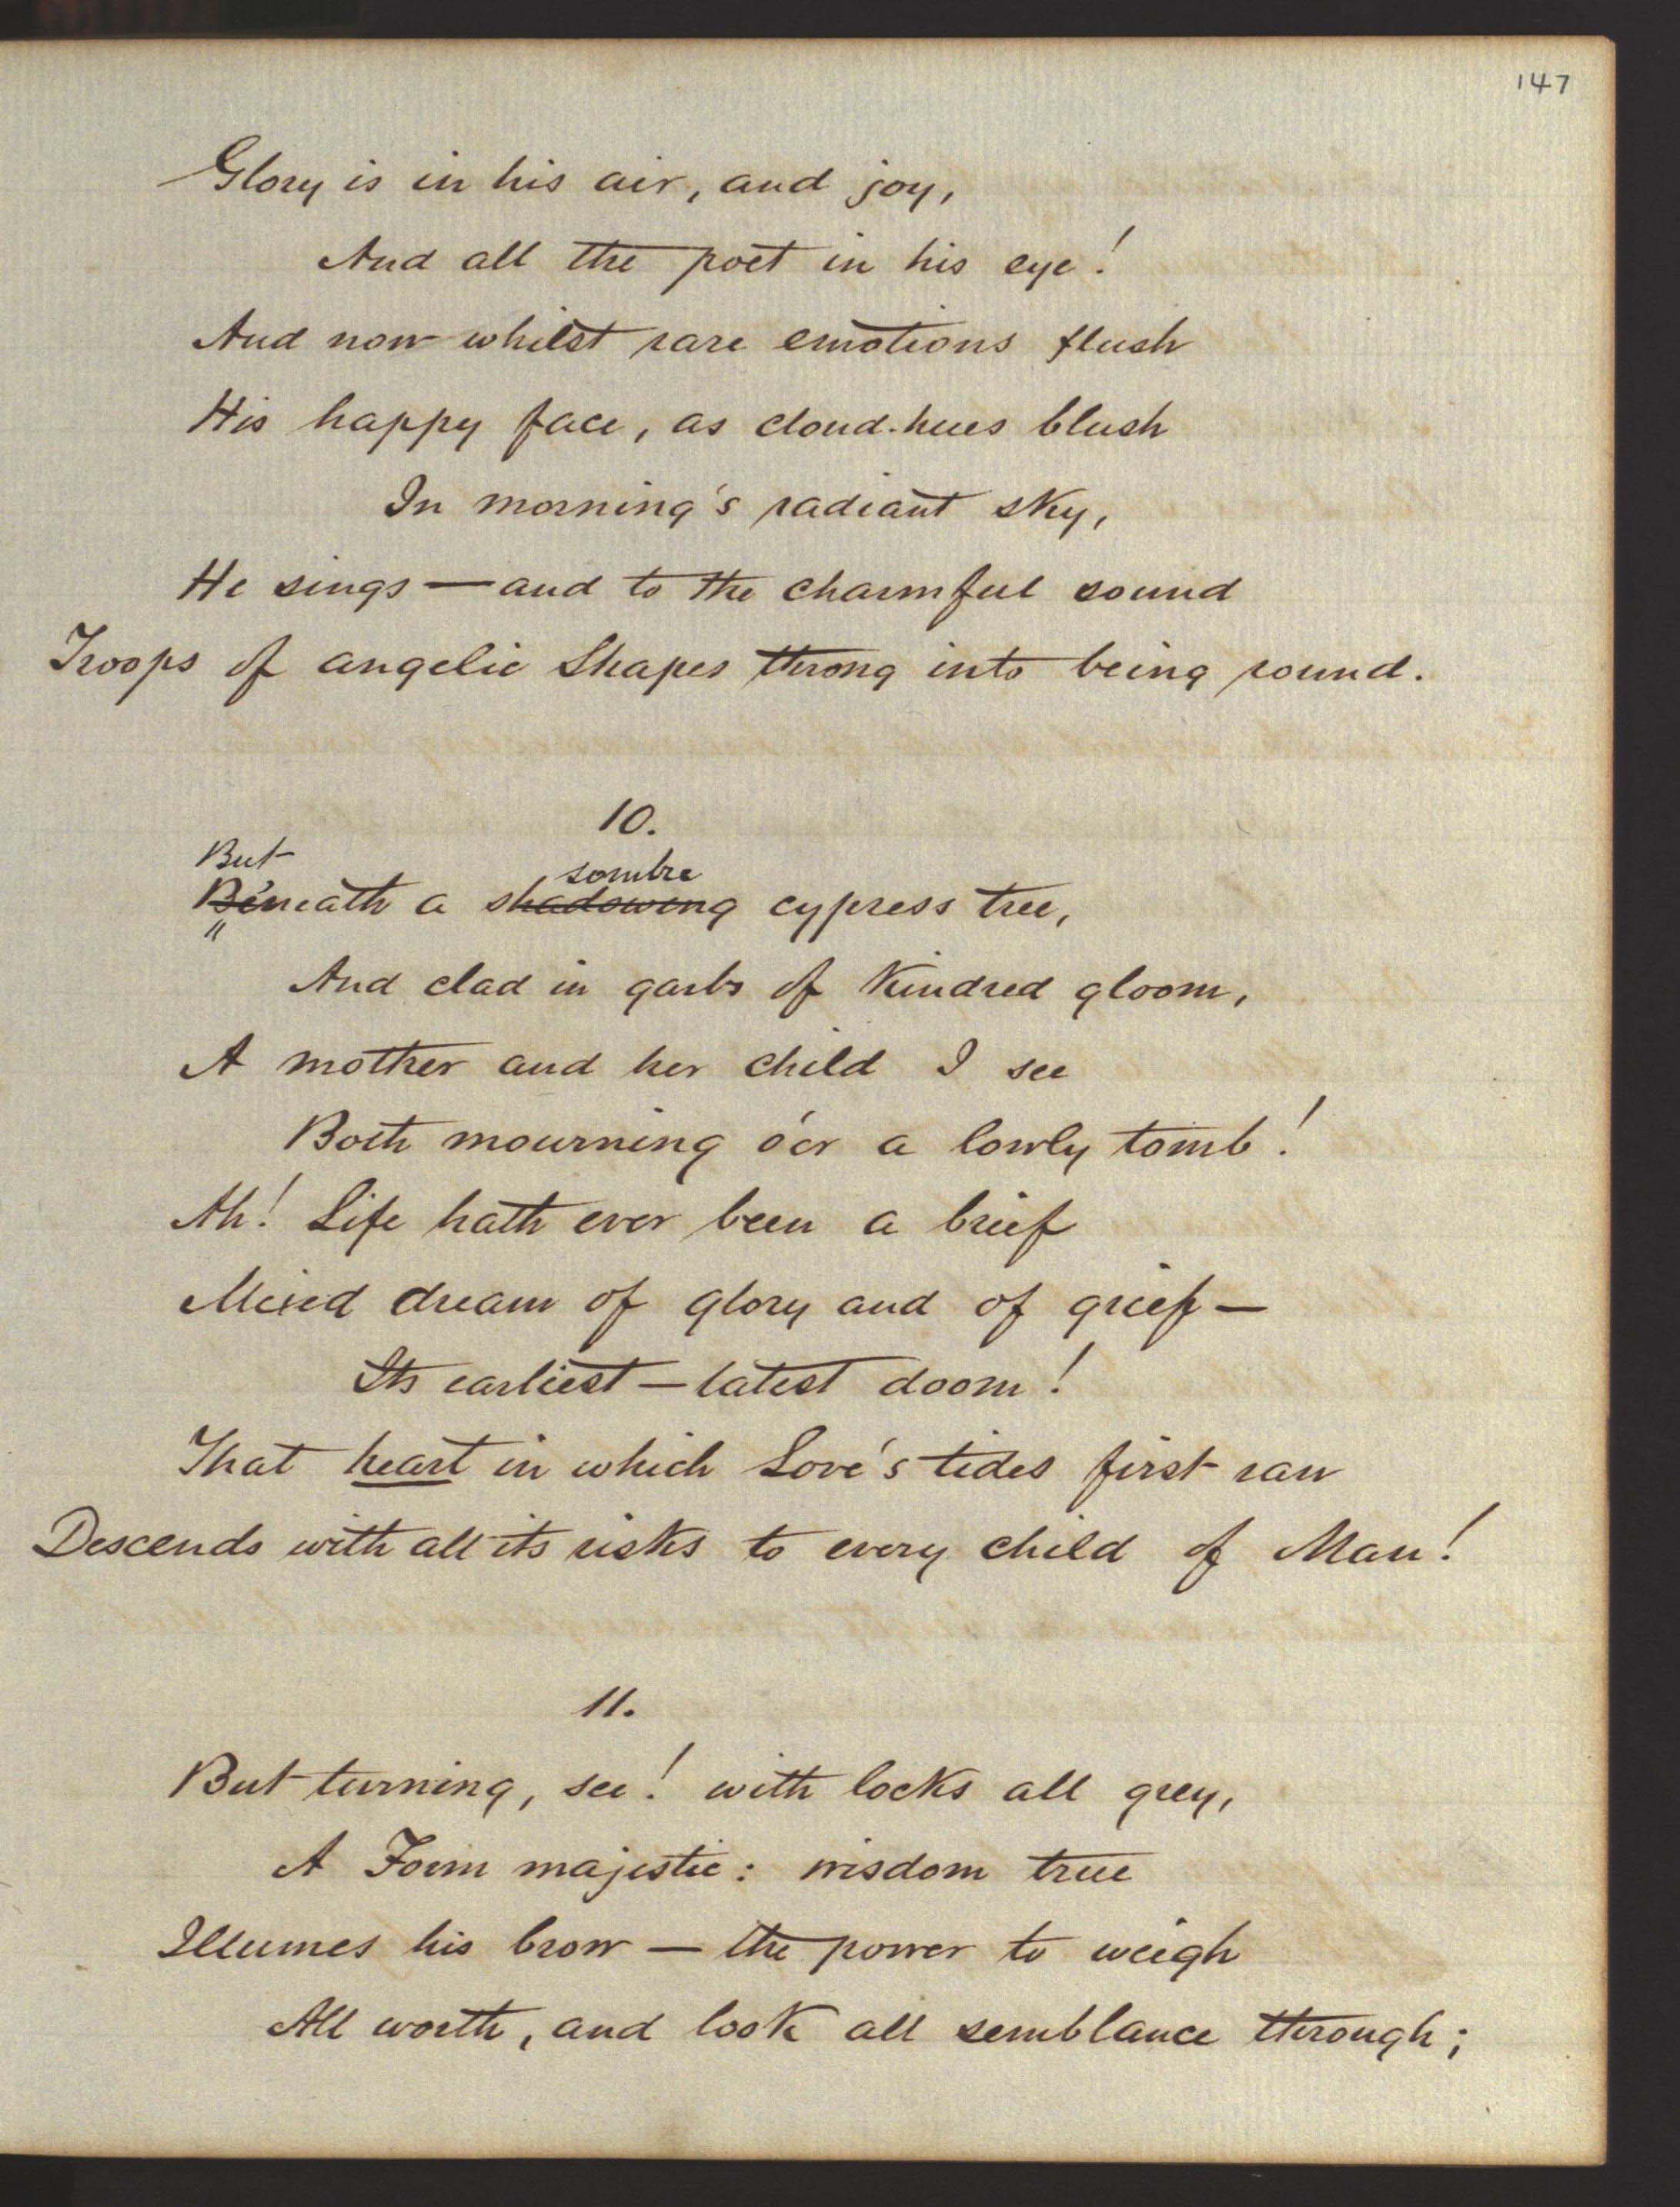 147
Glory is in his air, and joy,
And all the poet in his eye!
And now whilst rare emotions flush
His happy face, as cloud-hues blush
In morning's radiant sky,
He sings — and to the charmful sound
Troops of angelic Shapes throng into being round.
10.
But sombre
Beneath a shadowing cypress tree,
And clad in garbs of kindred gloom,
A mother and her child I see
Both mourning o'er a lowly tomb!
Ah! Life hath ever been a brief
Mixed dream of glory and of grief —
Its earliest — latest doom!
That heart in which Love's tides first ran
Descends with all its risks to every child of Man!
11.
But turning, see! with locks all grey,
A Form majestic: wisdom true
Illumes his brow — the power to weigh
All worth, and look all semblance through;